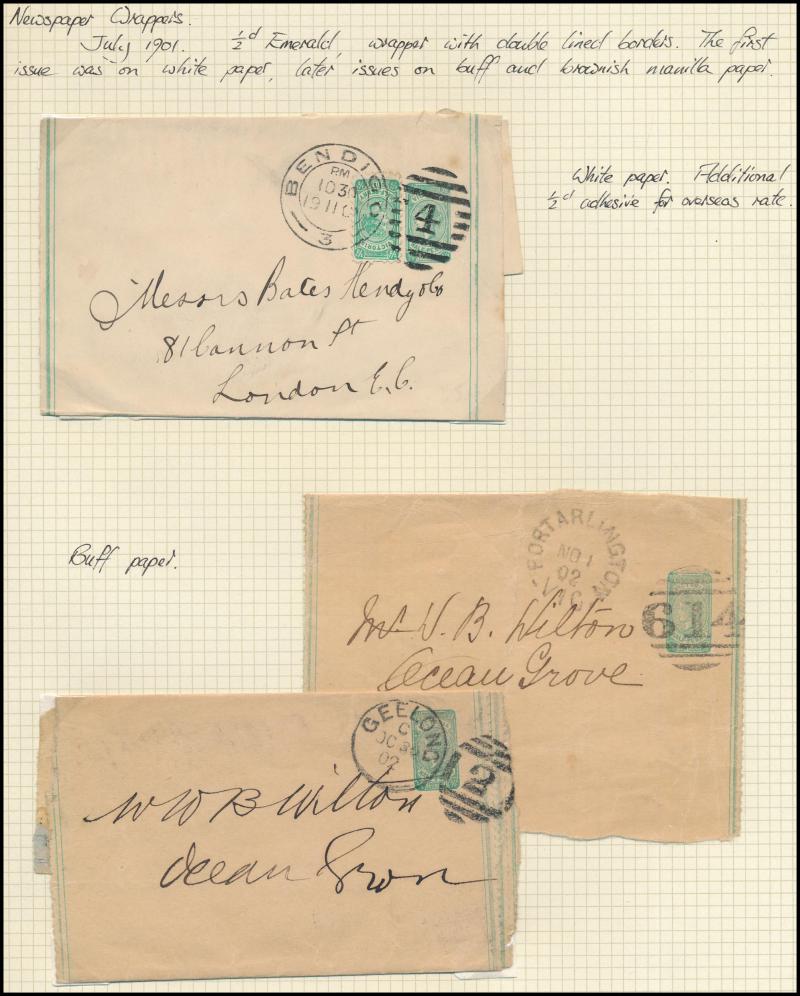 Newspaper Wrappers.
July 1901. ½d Emerald, wrapper with double lined borders. The first
issue was on white paper, later issues on buff and brownish manilla paper.
White paper. Additional
½d adhesive for overseas rate.
BENDIGO
PM
1030
19 11 0
3
4
VICTORIA
Messrs Bates Hendy & Co
81 Cannon St
London E.C.
Buff paper.
PORTARLINGTON
NO 1
02
VIC
614
Mr W. B. Wilton
Ocean Grove
GEELONG
C
OC 30
02
2
W B Wilton
Ocean Grove